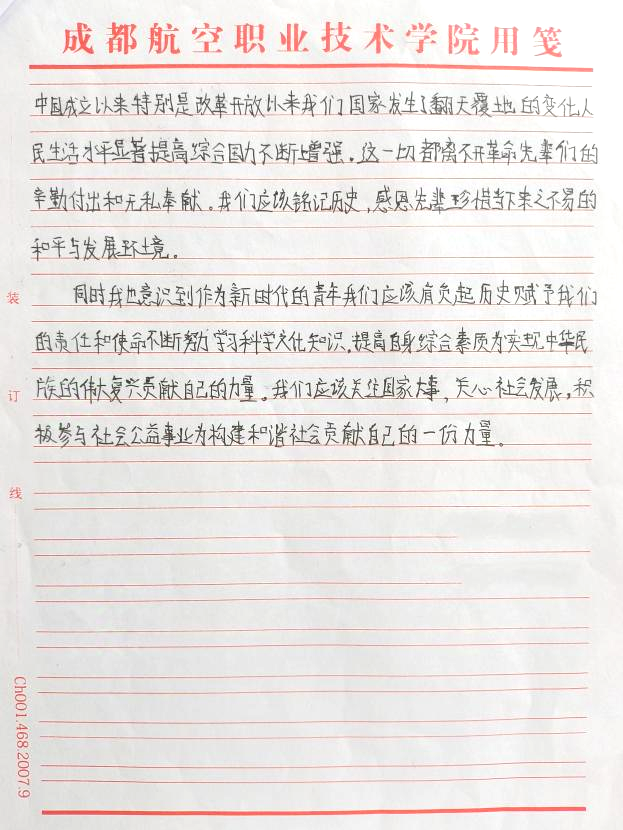 成都航空职业技术学院用笺
中国成立以来特别是改革开放以来我们国家发生了翻天覆地的变化人
民生活水平显著提高综合国力不断增强。这一切都离不开革命先辈们的
辛勤付出和无私奉献。我们应该铭记历史,感恩先辈珍惜当下来之不易的
和平与发展环境。
同时我也意识到作为新时代的青年我们应该肩负起历史赋予我们
的责任和使命不断努力学习科学文化知识,提高自身综合素质为实现中华民
族的伟大复兴贡献自己的力量。我们应该关注国家大事,关心社会发展,积
极参与社会公益事业为构建和谐社会贡献自己的一份力量。
装
订
线
Ch001.468.2007.9